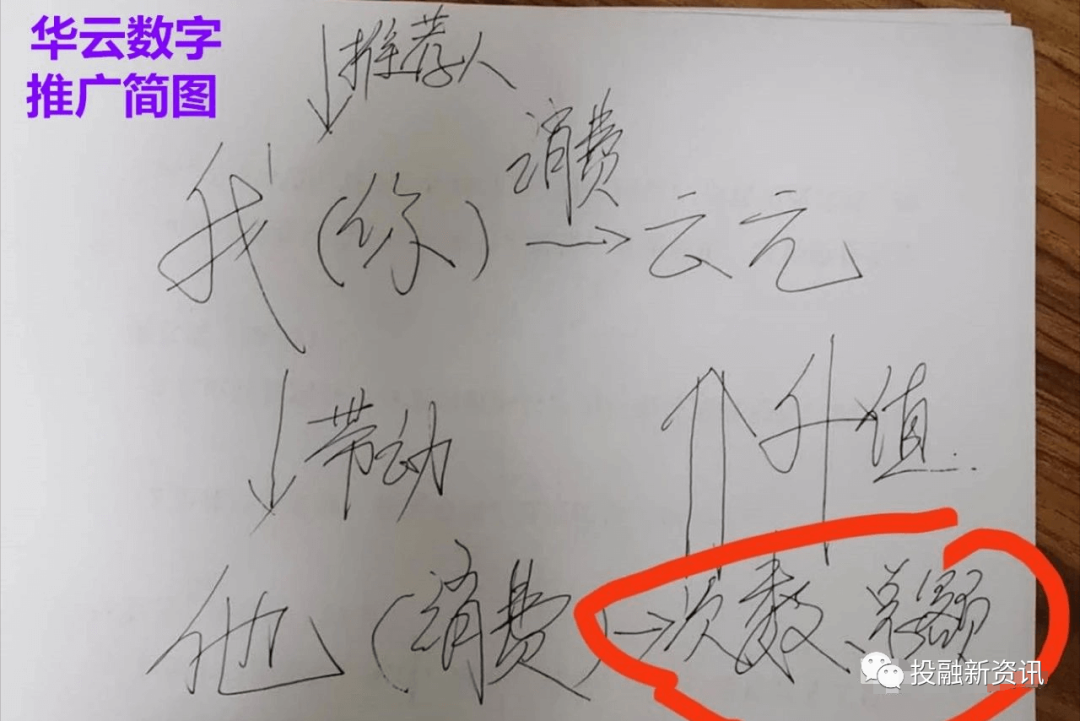 华云数字
推广简图
↓推荐人
消费
我(你)→云元
↓带动
升值
他(消费)→次数、总额
投融新资讯